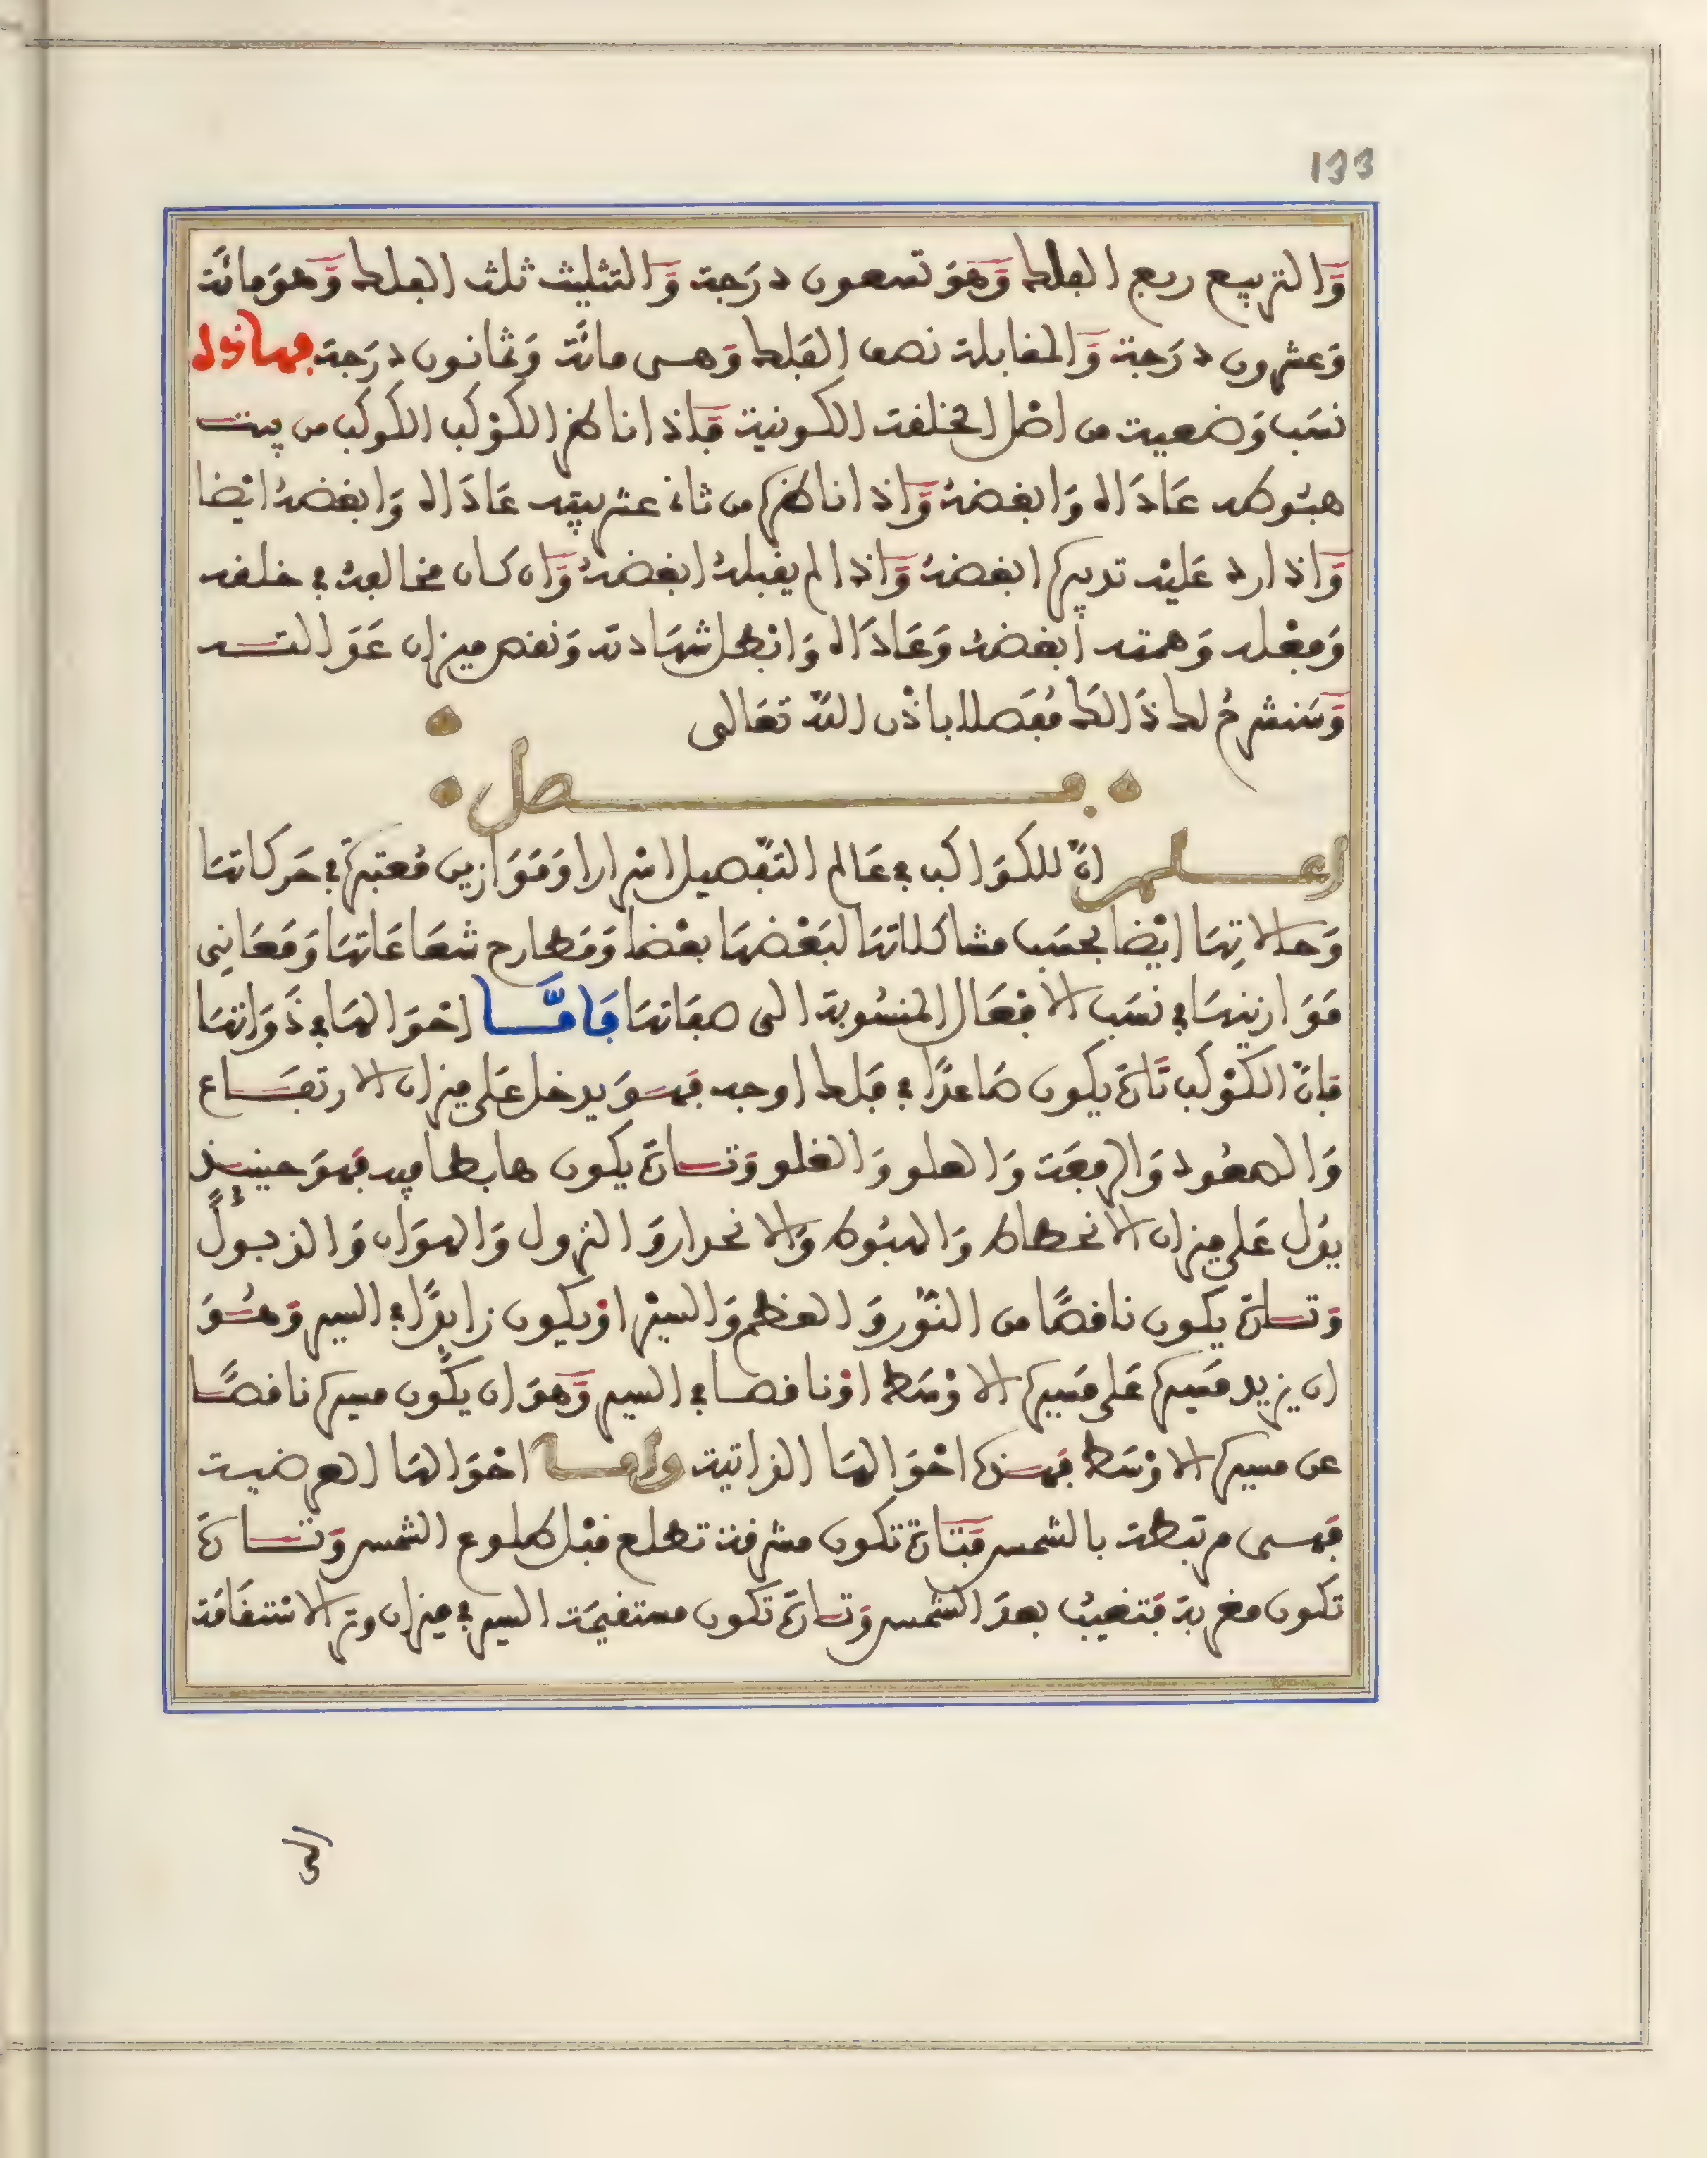 133
وَالتربيع ربع الفلك وَهوَ تسعون درَجة وَالتثليث ثلث الفلك وَهوَ مائَة
وَعشرون درَجة وَالمقابلة نصف الفَلك وَهى مائَة وَثمانون درَجة فهاذه
نسَب وَضعية من اصْل الخلقة الكونية فَإذا ناظر الكوْكب الكوكب من بيت
هبُوطه عَادَاه وَابغضهُ وَإذا ناظره من ثانى عشر بيته عَادَاه وَابغضهُ ايْضا
وَإذا رد عَليْه تدبيره ابغضهُ وَإذا لم يقبلهُ ابغضهُ وَإن كان مخالفهُ في خلقه
وَفِعْله وَهمته أبغضهُ وَعَادَاه وَابْطل شهَادته وَنقص ميزان عَوَالمه
وَسَنشرحُ لك ذَالك مُفَصلا باذْن اللّه تعَالى
فصل
اعلم انّ للكوَاكب في عَالم التفْصيل اسْرارا وَمَوَازين مُعتبرة في حَركاتهَا
وَحالاتِهَا ايْضا بحسَب مشاكلاتهَا لبَعْضهَا بعْضا وَمَطارح شعَاعَاتهَا وَمَعَانِى
مَوَازينهَا في نسَب الافْعَال المنسُوبة الى صفَاتهَا فَامَّا احْوَالهَا في ذَوَاتهَا
فإنّ الكوْكب تَارَة يكون صَاعدًا في فَلك اوجه فهوَ يدخل عَلى ميزان الارتفَاع
وَالصعُود وَالرفعَة وَالعلو وَالغلو وَتارَة يكون هابطا فيه فهوَ حينئذ
يدُل عَلى ميزان الانحطاط وَالهبُوط وَالانحدار وَالنزول وَالهوَان وَالذبُول
وَتارَة يكون ناقصًا من النّور وَالعظم وَالسيْر اوْ يكون زايدًا في السير وَهُوَ
ان يزيد مَسيره عَلى مَسيره الاوْسَط اوْ ناقصا في السير وَهوَ ان يكُون مسيره ناقصًا
عن مسيره الاوْسَط فهذه احْوَالهَا الذاتية وَامَا احْوَالهَا العرضية
فَهى مرتبَطة بالشمس فَتَارَة تكون مشرقة تطلع قبْل طلوع الشمس وَتارَة
تكون مغربة فَتغيبُ بعدَ الشمس وَتارَة تكون مستقيمَة السير في ميزان وتر الاستقَامَة
الى